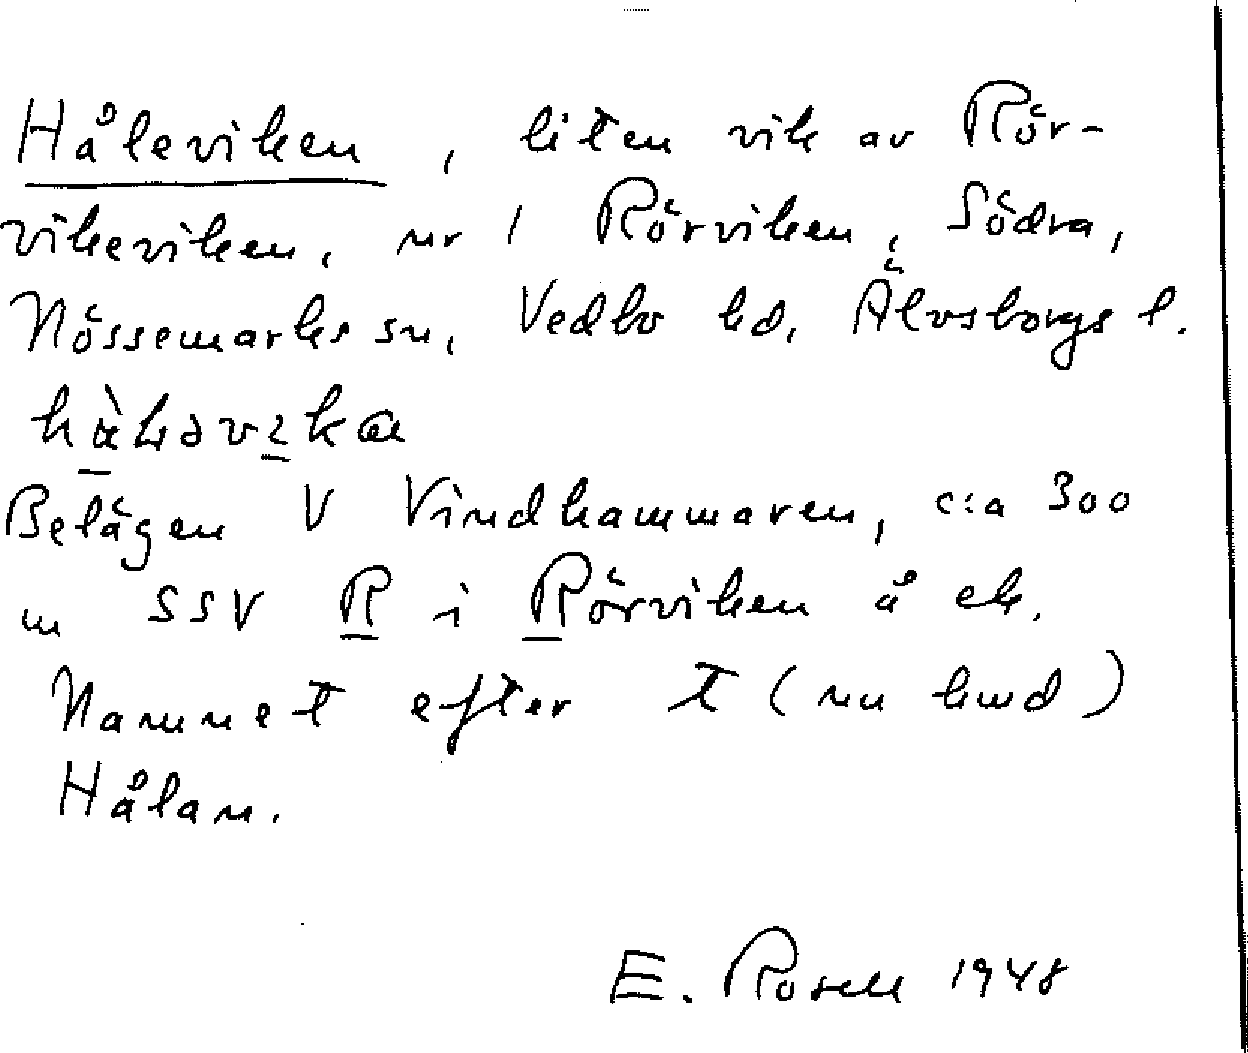 Håleviken, liten vik av Rör-
vikeviken, nr 1 Rörviken, Södra,
Nössemarks sn, Vedbo hd, Älvsborgs l.
Belägen V Vindhammaren, c:a 300
m SSV R i Rörviken å ek.
Namnet efter t (nu hmd)
Hålan.
E. Rosell 1948